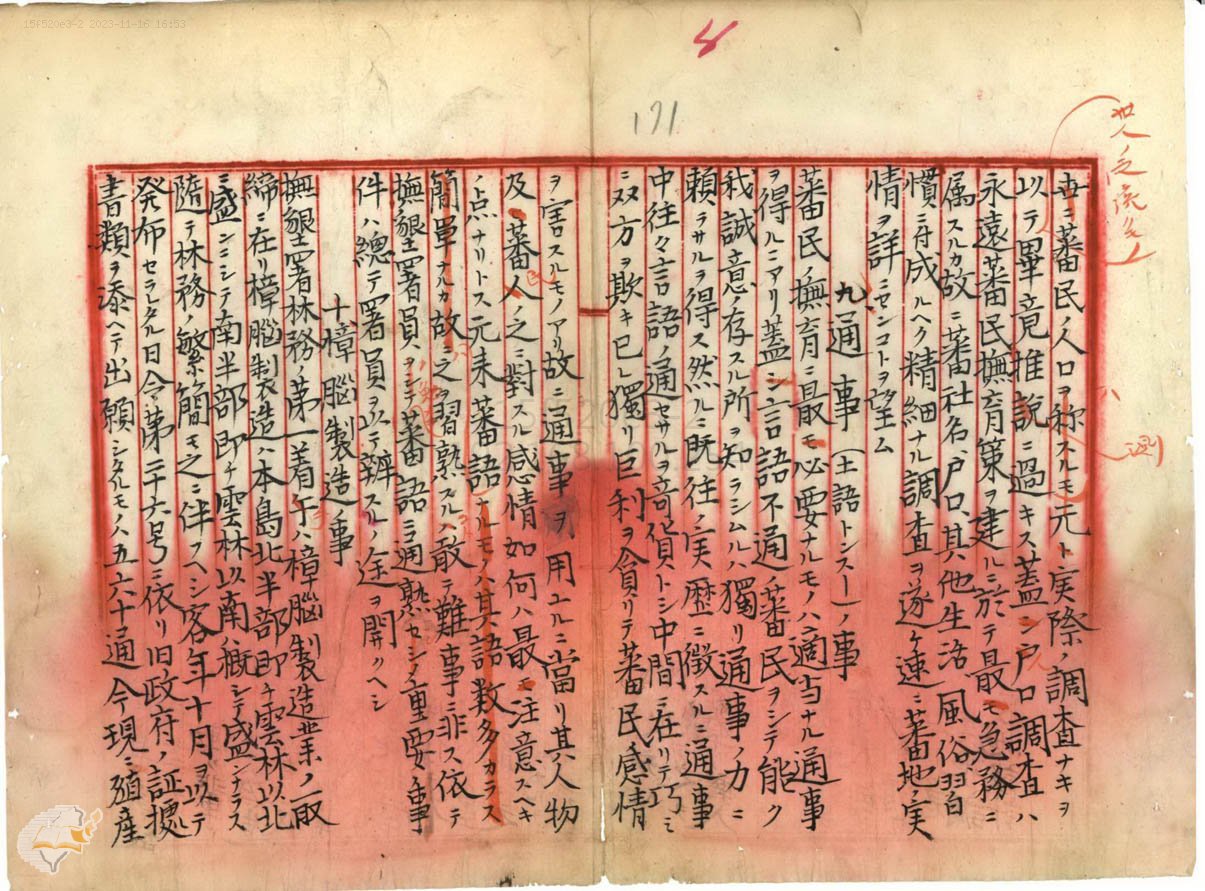 158520e3-2 2023-11-16 16:53
171
世ニ蕃民ノ人口ヲ称スルモ元ト実際ノ調査ナキヲ
以テ畢竟推説ニ過キス蓋シ戸口調査ハ
永遠蕃民撫育策ヲ建ルニ於テ最モ急務ニ
属スルカ故ニ蕃社名、戸口、其他生活風俗習
慣ニ付成ルヘク精細ナル調査ヲ遂ケ速ニ蕃地ノ実
情ヲ詳ニセンコトヲ望ム
九 通事(土語トンスー)ノ事
蕃民ノ撫育ニ最モ必要ナルモノハ適当ナル通事
ヲ得ルニアリ蓋シ言語不通ノ蕃民ヲシテ能ク
我誠意ノ存スル所ヲ知ラシムルハ獨リ通事ノ力ニ
頼ラサルヲ得ス然ルニ既往ノ実歴ニ徴スルニ通事
中往々言語ノ通セサルヲ奇貨トシ中間ニ在リテ巧ミ
ニ双方ヲ欺キ己レ獨リ巨利ヲ貪リテ蕃民感情
ヲ害スルモノアリ故ニ通事ヲ用ユルニ當リ其人物
及蕃人ノ之ニ對スル感情如何ハ最モ注意スヘキ
ノ点ナリトス元来蕃語ナルモノハ其語数多カラス
簡單ナルカ故ニ之ヲ習熟スルハ敢テ難事ニ非ス依テ
撫墾署員ヲシテ蕃語ニ通熟セシメ重要ノ事
件ハ總テ署員ヲ以テ辨スルノ途ヲ開クヘシ
十 樟脳製造ノ事
撫墾署林務ノ第一着手ハ樟脳製造業ノ取
締ニ在リ樟脳製造ハ本島北半部即チ雲林以北
ニ盛ンニシテ南半部即チ雲林以南ハ概シテ盛ンナラス
随テ林務ノ繁簡モ之ニ伴フヘシ客年十月ヲ以テ
発布セラレタル日令第二十六号ニ依リ旧政府ノ証據
書類ヲ添ヘテ出願シタルモノハ五六十通今現ニ殖産